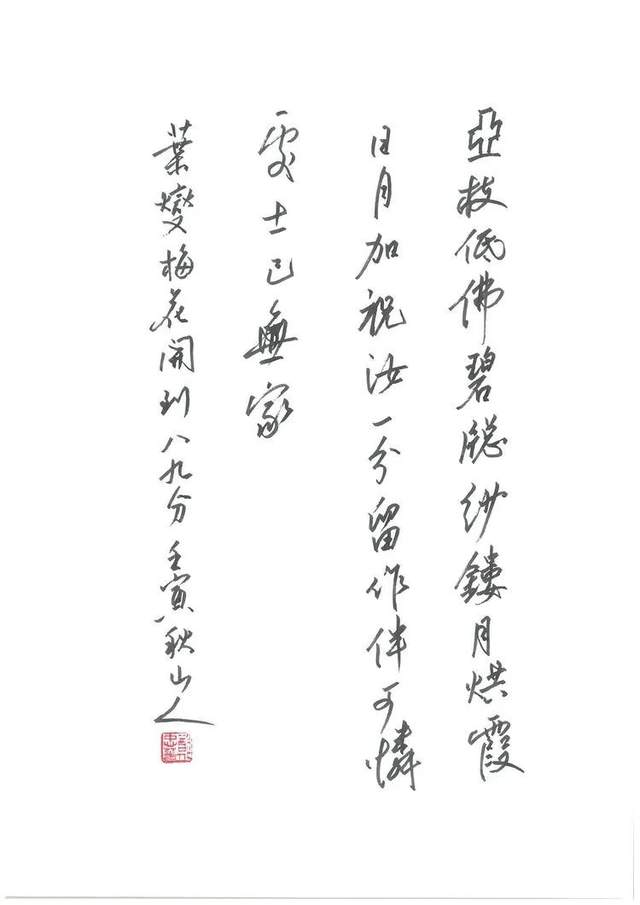 亞枝低佛碧牕紗鏤月烘霞
日月加祝汝一分留作伴可憐
處士已無家
葉燮梅花開到八九分壬寅秋山人